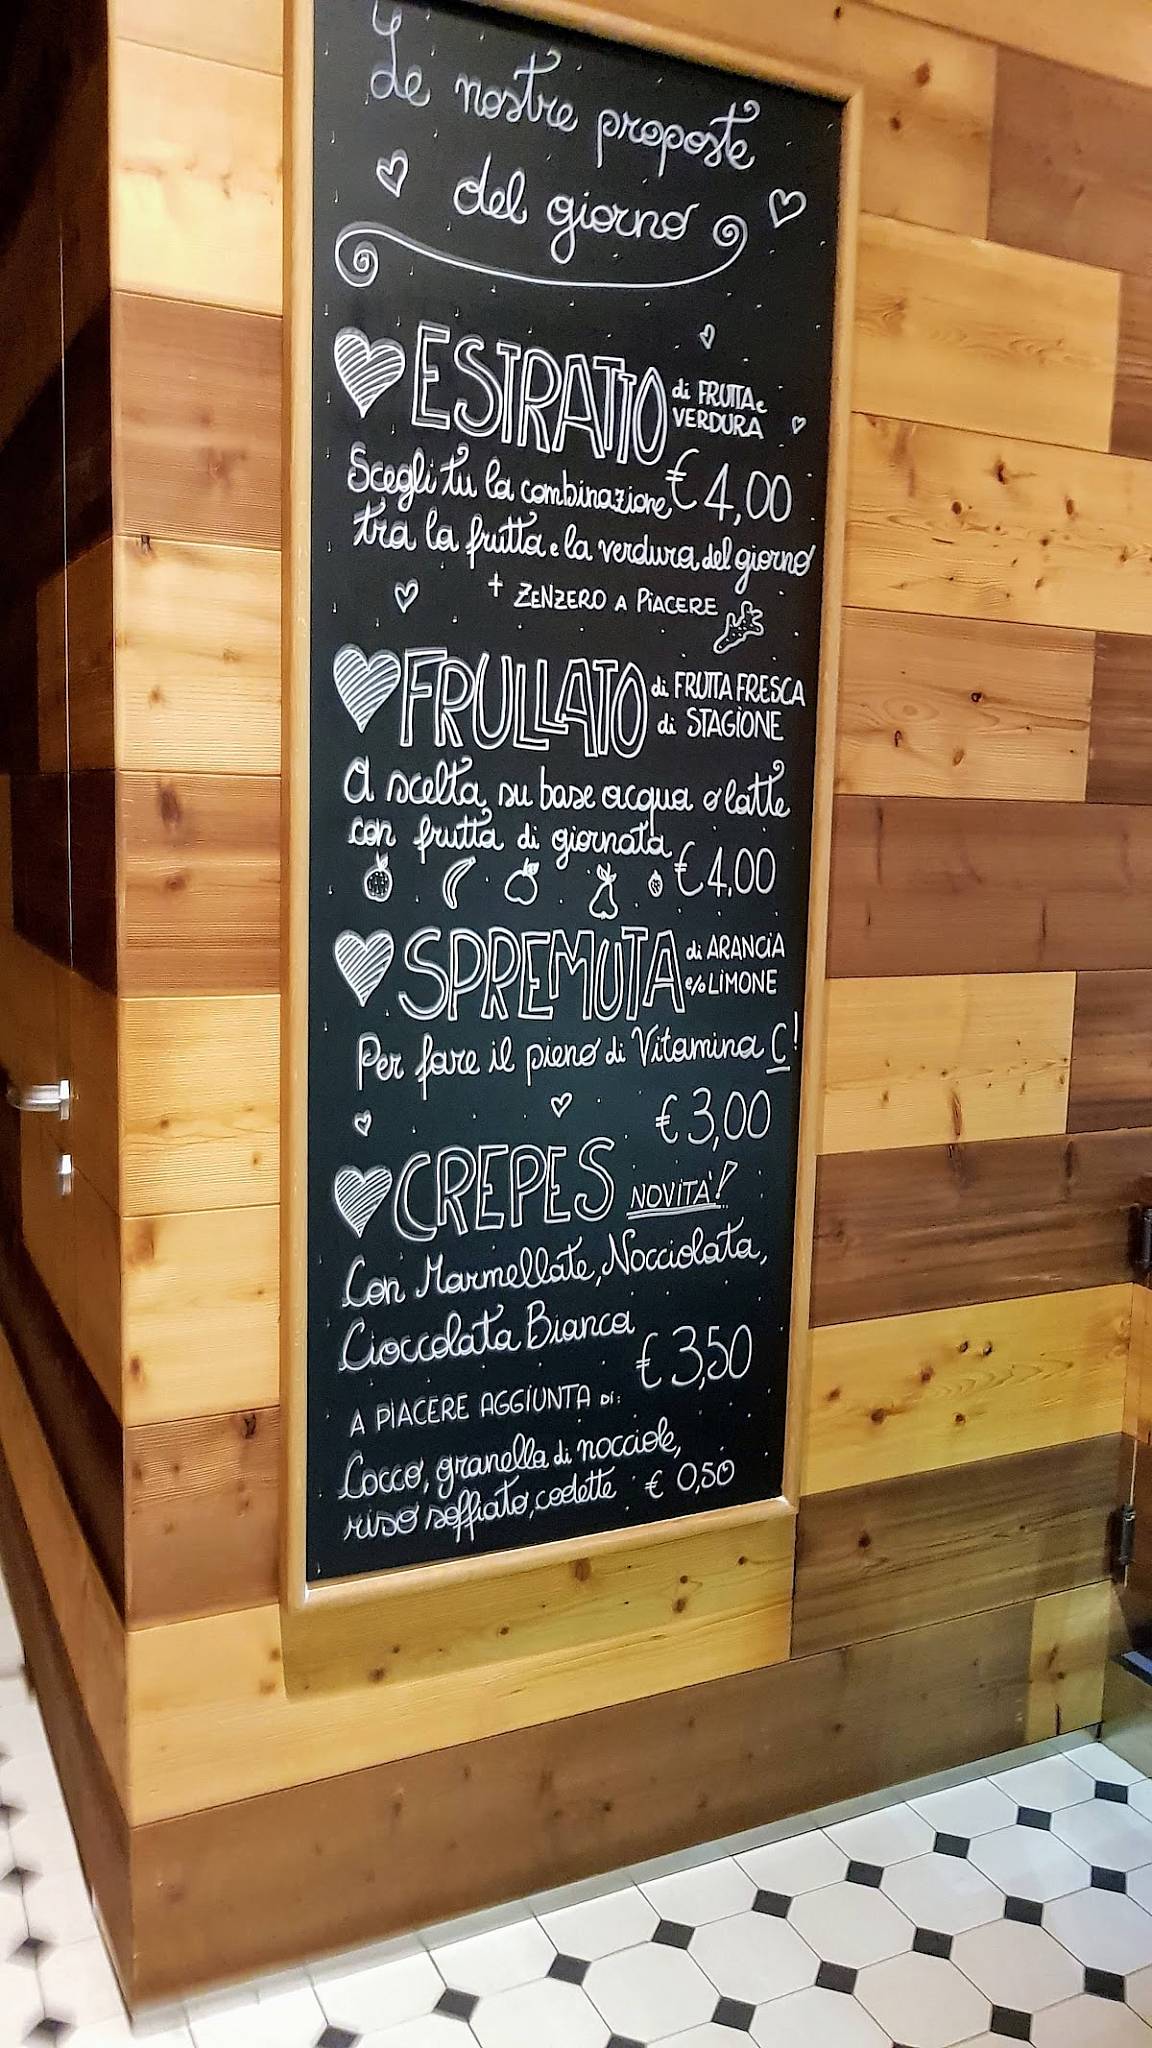 Le nostre proposte
del giorno
ESTRATTO di FRUTTA e
VERDURA
Scegli tu la combinazione € 4,00
tra la frutta e la verdura del giorno
+ ZENZERO A PIACERE
FRULLATO di FRUTTA FRESCA
di STAGIONE
A scelta su base acqua o latte
con frutta di giornata € 4,00
SPREMUTA di ARANCIA
e/o LIMONE
Per fare il pieno di Vitamina C!
€ 3,00
CREPES NOVITA'!
Con Marmellate, Nocciolata,
Cioccolata Bianca
€ 3,50
A PIACERE AGGIUNTA DI:
Cocco, granella di nocciole,
riso soffiato, codette € 0,50